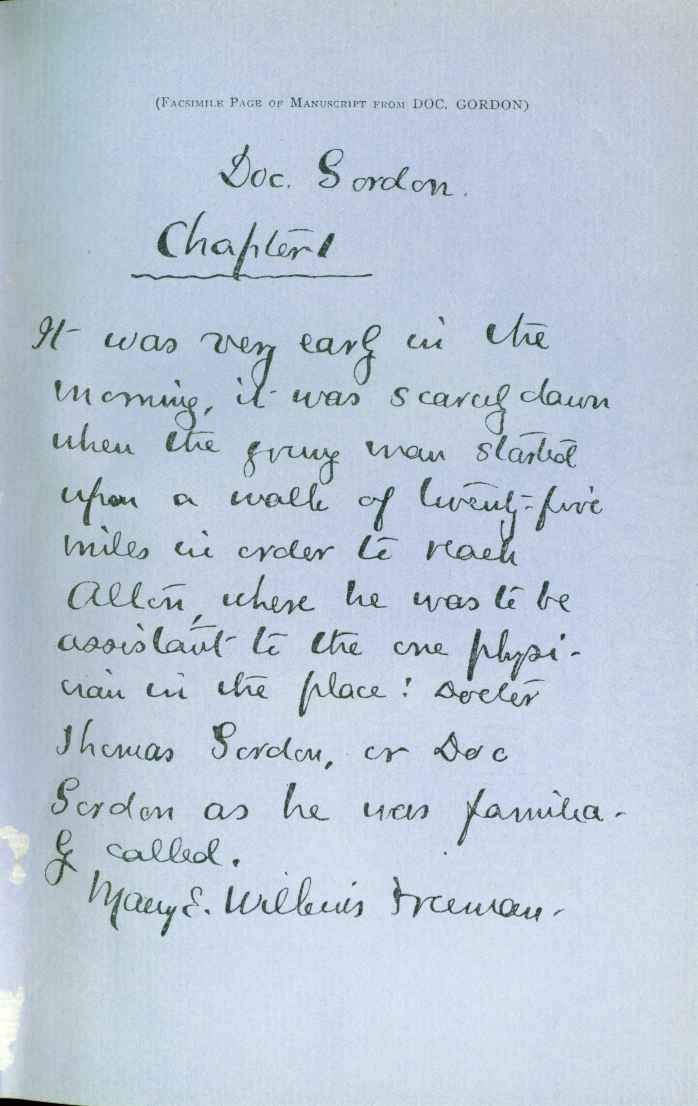 (FACSIMILE PAGE OF MANUSCRIPT FROM DOC. GORDON)
Doc. Gordon.
Chapter 1
It was very early in the
morning, it was scarcely dawn
when the young man started
upon a walk of twenty-five
miles in order to reach
Alton, where he was to be
assistant to the one physi-
cian in the place: Doctor
Thomas Gordon, or Doc
Gordon as he was familia-
ly called.
Mary E. Wilkins Freeman-